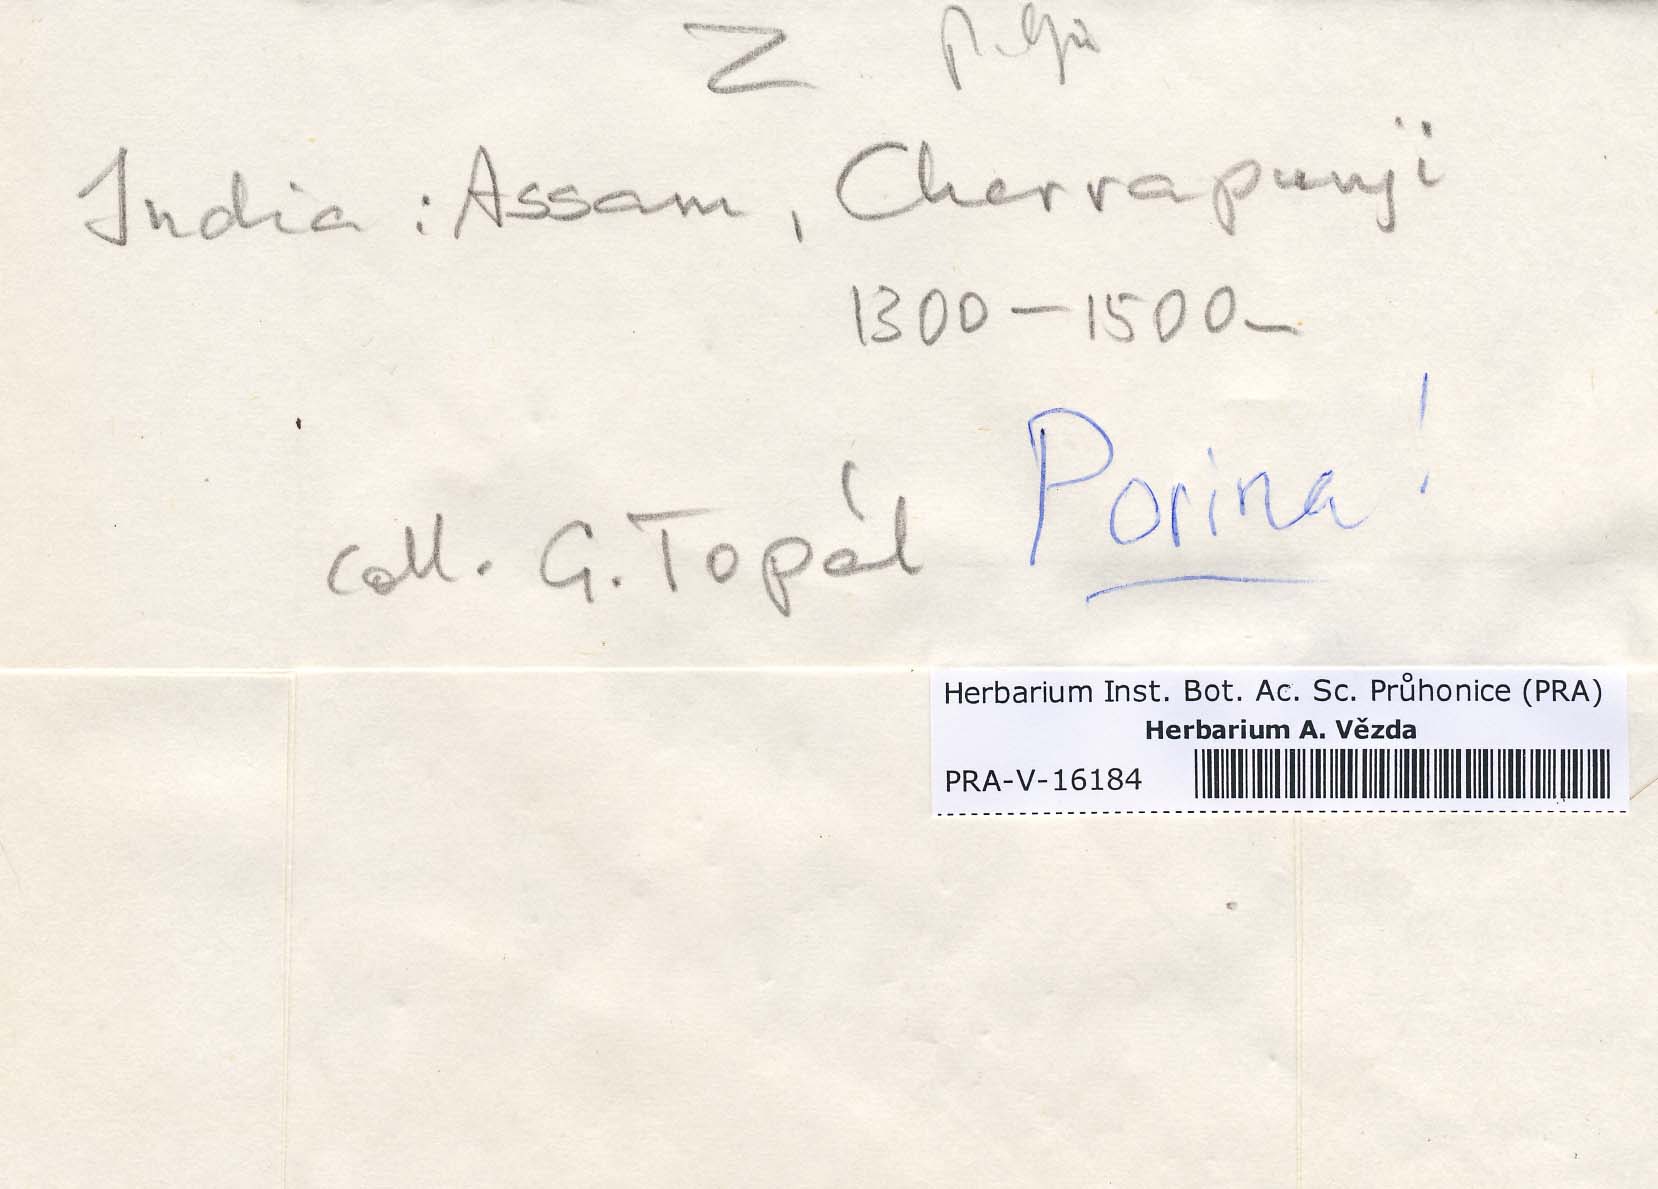 Z
India : Assam, Cherrapunji
1300 – 1500
Porina!
coll. G. Topál
Herbarium Inst. Bot. Ac. Sc. Průhonice (PRA)
Herbarium A. Vězda
PRA-V-16184